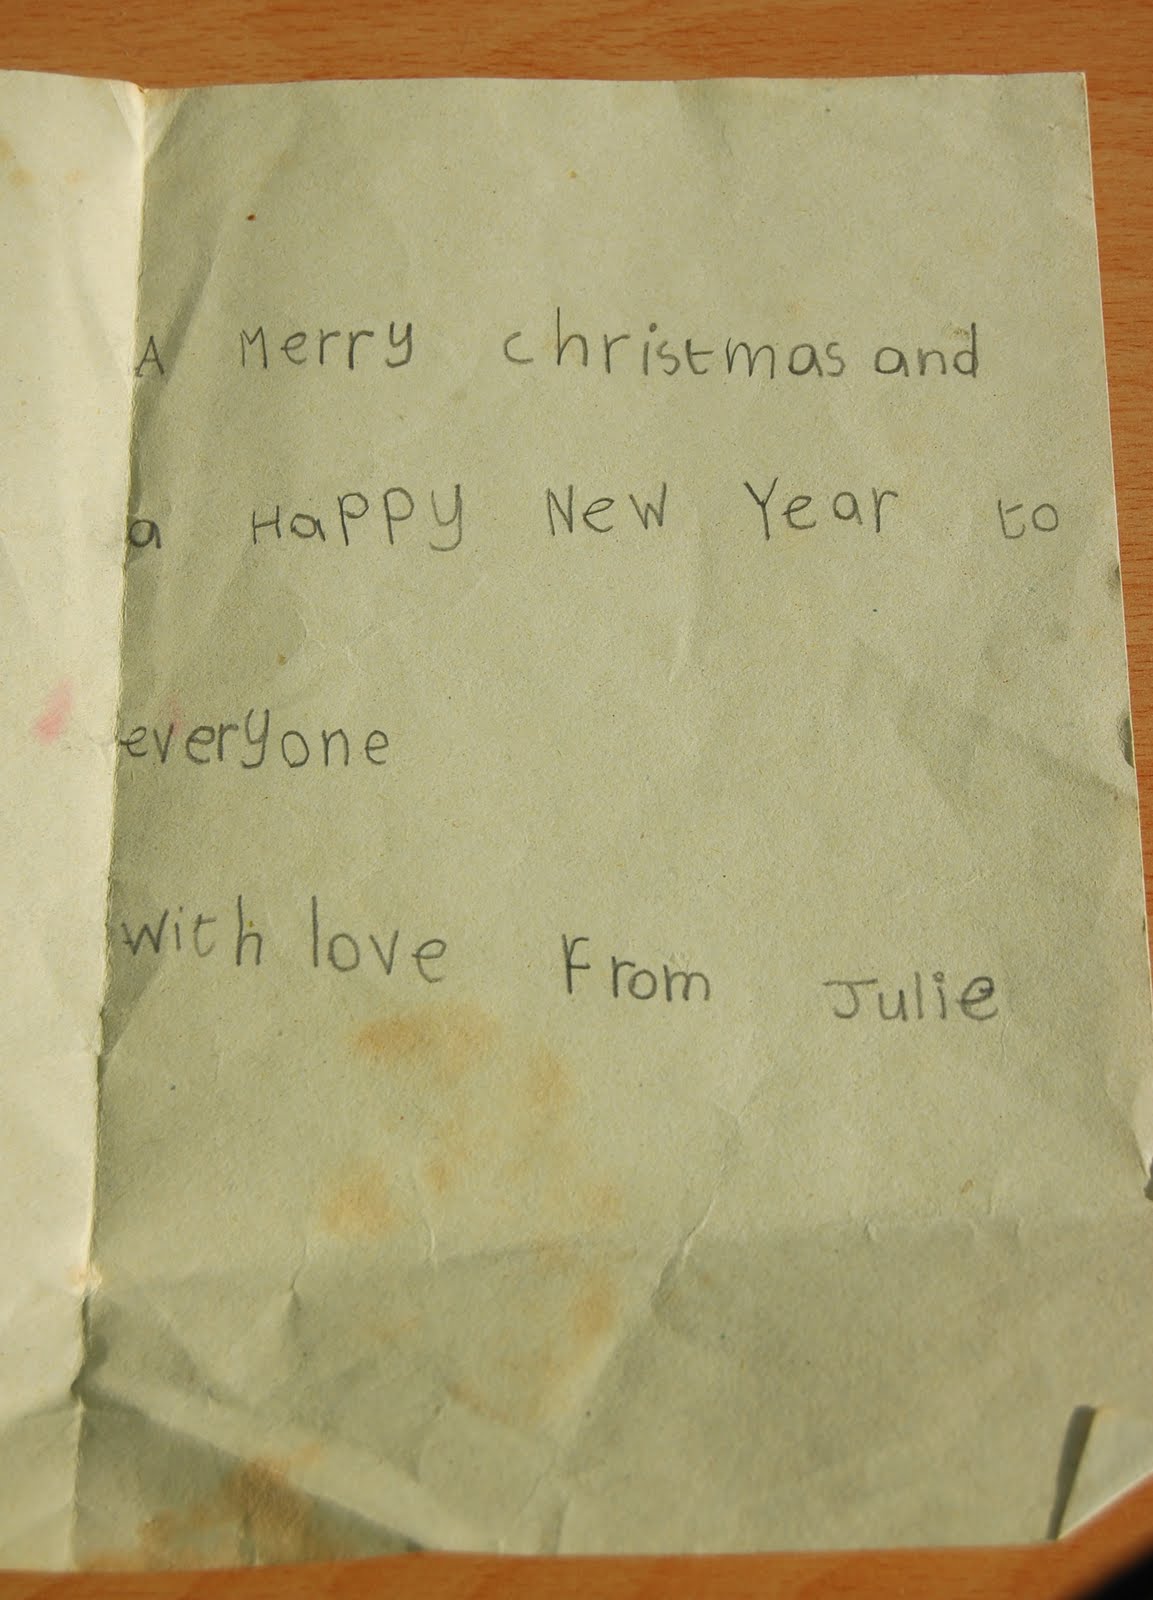 A Merry christmas and
a Happy New Year to
everyone
with love From Julie